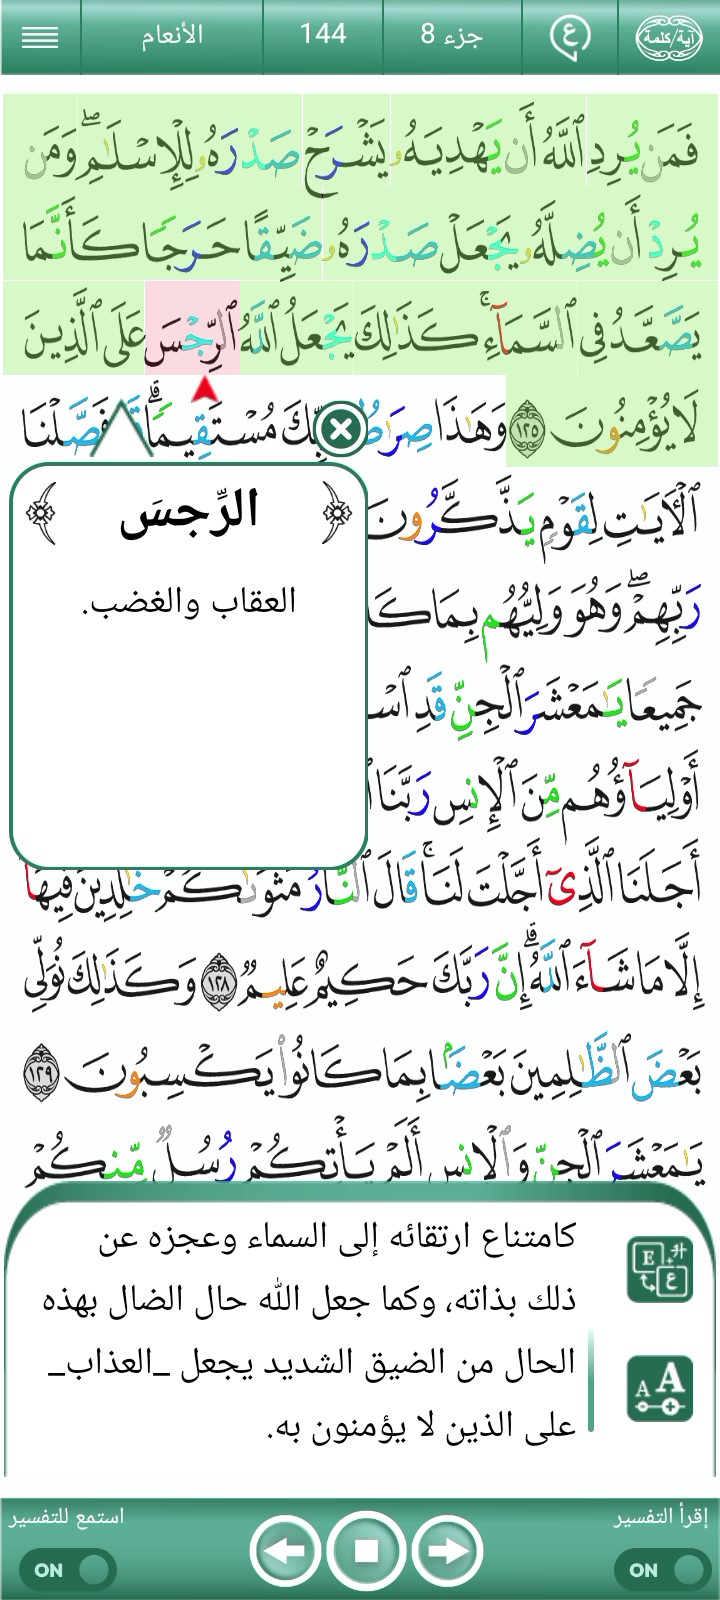 آية/كلمة
ع
جزء 8
144
الأنعام
فَمَن يُرِدِ ٱللَّهُ أَن يَهْدِيَهُۥ يَشْرَحْ صَدْرَهُۥ لِلْإِسْلَٰمِ ۖ وَمَن
يُرِدْ أَن يُضِلَّهُۥ يَجْعَلْ صَدْرَهُۥ ضَيِّقًا حَرَجًا كَأَنَّمَا
يَصَّعَّدُ فِى ٱلسَّمَآءِ ۚ كَذَٰلِكَ يَجْعَلُ ٱللَّهُ ٱلرِّجْسَ عَلَى ٱلَّذِينَ
لَا يُؤْمِنُونَ ١٢٥ وَهَٰذَا صِرَٰطُ رَبِّكَ مُسْتَقِيمًا ۗ قَدْ فَصَّلْنَا
ٱلْءَايَٰتِ لِقَوْمٍ يَذَّكَّرُونَ
رَبِّهِمْ ۖ وَهُوَ وَلِيُّهُم بِمَا كَا
جَمِيعًا يَٰمَعْشَرَ ٱلْجِنِّ قَدِ ٱسْ
أَوْلِيَآؤُهُم مِّنَ ٱلْإِنسِ رَبَّنَا ٱ
أَجَلَنَا ٱلَّذِىٓ أَجَّلْتَ لَنَا ۚ قَالَ ٱلنَّارُ مَثْوَىٰكُمْ خَٰلِدِينَ فِيهَآ
إِلَّا مَا شَآءَ ٱللَّهُ ۗ إِنَّ رَبَّكَ حَكِيمٌ عَلِيمٌ ١٢٨ وَكَذَٰلِكَ نُوَلِّى
بَعْضَ ٱلظَّٰلِمِينَ بَعْضًۢا بِمَا كَانُوا۟ يَكْسِبُونَ ١٢٩
يَٰمَعْشَرَ ٱلْجِنِّ وَٱلْإِنسِ أَلَمْ يَأْتِكُمْ رُسُلٌ مِّنكُمْ
الرِّجسَ
العقاب والغضب.
كامتناع ارتقائه إلى السماء وعجزه عن
ذلك بذاته، وكما جعل الله حال الضال بهذه
الحال من الضيق الشديد يجعل _العذاب_
على الذين لا يؤمنون به.
E ع
A A
إقرأ التفسير
ON
استمع للتفسير
ON